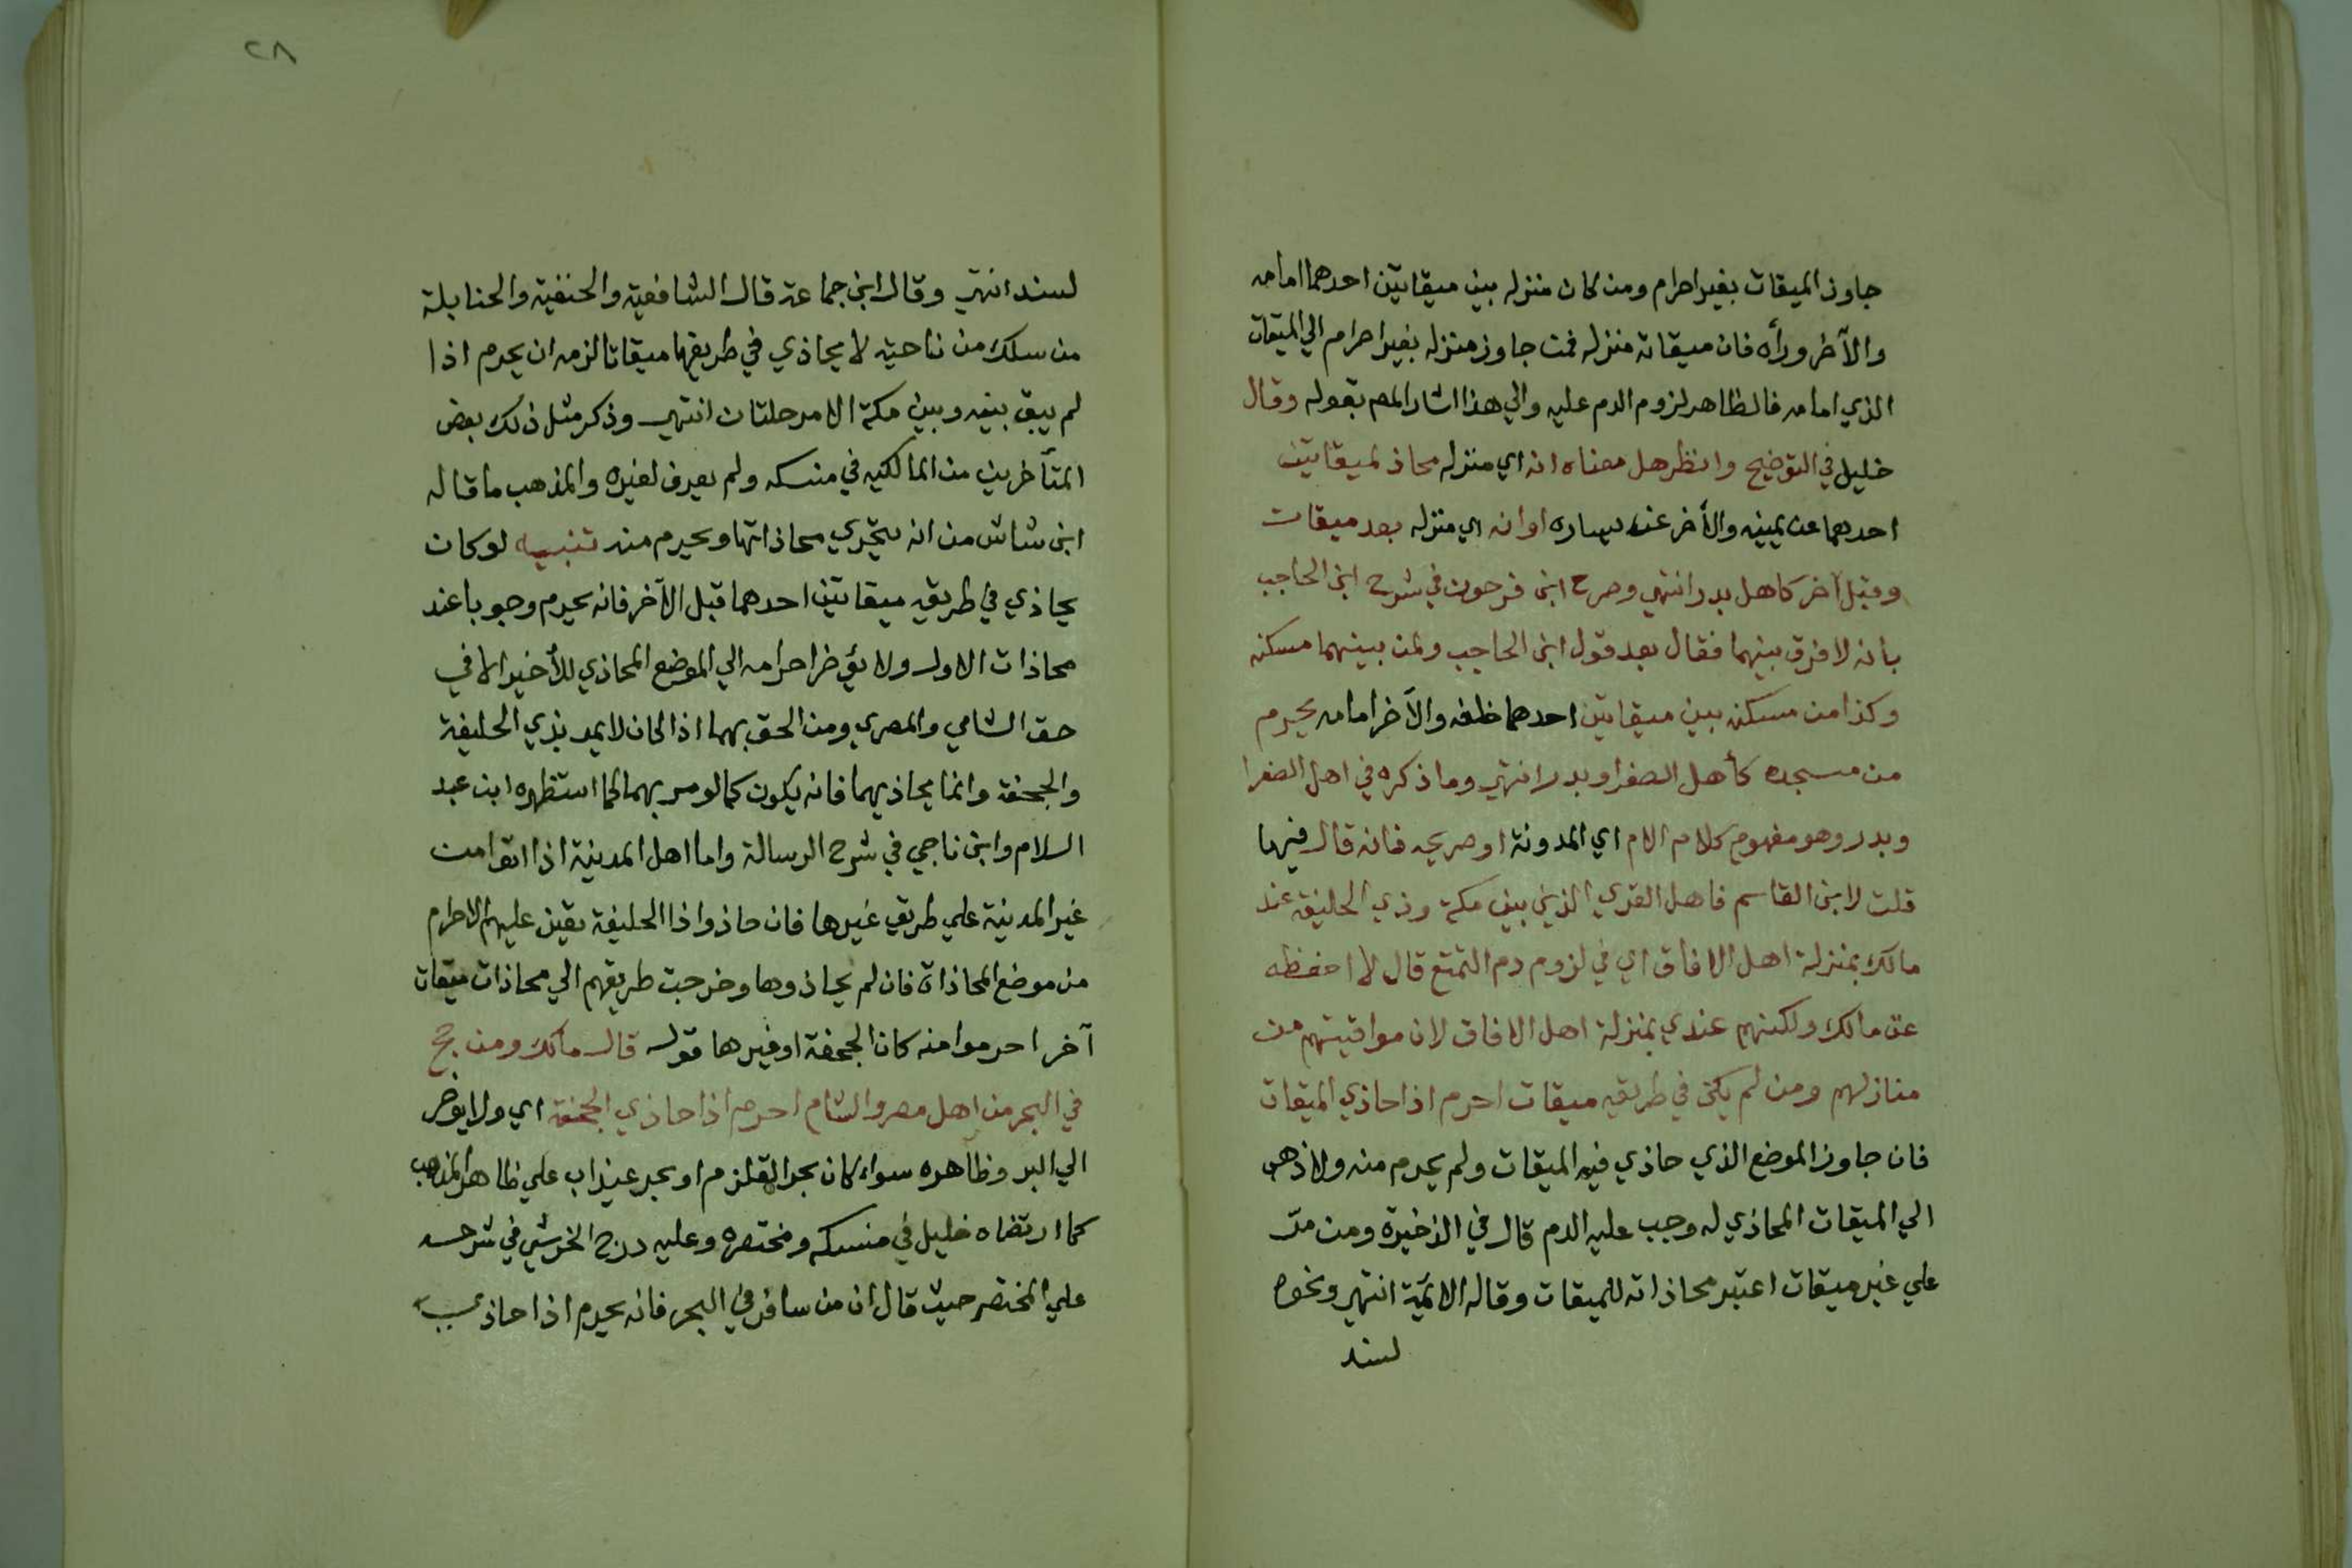 جاوز الميقات بغير احرام ومن كان منزله بين ميقاتين احدهما امامه
والآخر ورأه فان ميقاته منزله فمت جاوز منزله بغير احرام الي الميقات
الذي امامه فالظاهر لزوم الدم عليه والي هذا اشار المص بقوله وقال
خليل في التوضيح وانظر هل معناه انه اي منزله محاذ لميقاتين
احدهما عن يمينه والأخر عن يساره او انه اي منزله بعد ميقات
وقبل آخر كاهل بدر انتهي وصرح ابن فرحون في شرح ابن الحاجب
بانه لا فرق بينهما فقال بعد قول ابن الحاجب ولمن بينهما مسكنه
وكذا من مسكنه بين ميقاتين احدهما خلفه والآخر امامه يحرم
من مسجده كأهل الصفرا وبدر انتهي وما ذكره في اهل الصفرا
وبدر وهو مفهوم كلام الام اي المدونة او صريحه فانه قال فيها
قلت لابن القاسم فاهل القري الذين بين مكة وذي الحليفة عند
مالك بمنزلة اهل الافاق اي في لزوم دم التمتع قال لا احفظه
عن مالك ولكنهم عندي بمنزلة اهل الافاق لان مواقيتهم من
منازلهم ومن لم يكن في طريقه ميقات احرم اذا حاذي الميقات
فان جاوز الموضع الذي حاذي فيه الميقات ولم يحرم منه ولا ذهب
الي الميقات المحاذي له وجب عليه الدم قال في الذخيرة ومن مرّ
علي غير ميقات اعتبر محاذاته للميقات وقاله الائمة انتهي ونحوه
لسند
٢٨
لسند انتهي وقال ابن جماعة قال الشافعية والحنفية والحنابلة
من سلك من ناحية لا يحاذي في طريقها ميقاتا لزمه ان يحرم اذا
لم يبق بينه وبين مكة الا مرحلتان انتهي وذكر مثل ذلك بعض
المتأخرين من المالكيه في منسكه ولم يعرف لغيره والمذهب ما قاله
ابن شاش من انه يتحري محاذاتها ويحرم منه تنبيه لو كان
يحاذي في طريقه ميقاتين احدهما قبل الآخر فانه يحرم وجوبا عند
محاذات الاول ولا يؤخر احرامه الي الموضع المحاذي للأخير الا في
حق الشامي والمصري ومن الحق بهما اذا كان لا يمر بذي الحليفة
والجحفة وانما يحاذيهما فانه يكون كما لو مر بهما كما استظهره ابن عبد
السلام وابن ناجي في شرح الرسالة واما اهل المدينة اذا اتوا من
غير المدينة علي طريق غيرها فان حاذوا ذا الحليفة تعين عليهم الاحرام
من موضع المحاذاة فان لم يحاذوها وخرجت طريقهم الي محاذات ميقات
آخر احرموا منه كان الجحفة او غيرها قوله قال مالك ومن حج
في البحر من اهل مصر والشام احرم اذا حاذي الجحفة اي ولا يوخر
الي البر وظاهره سواء كان بحر القلزم او بحر عيذاب علي ظاهر المذهب
كما ارتضاه خليل في منسكه ومختصره وعليه درج الخرشي في شرحه
علي المختصر حيث قال ان من سافر في البحر فانه يحرم اذا حاذي